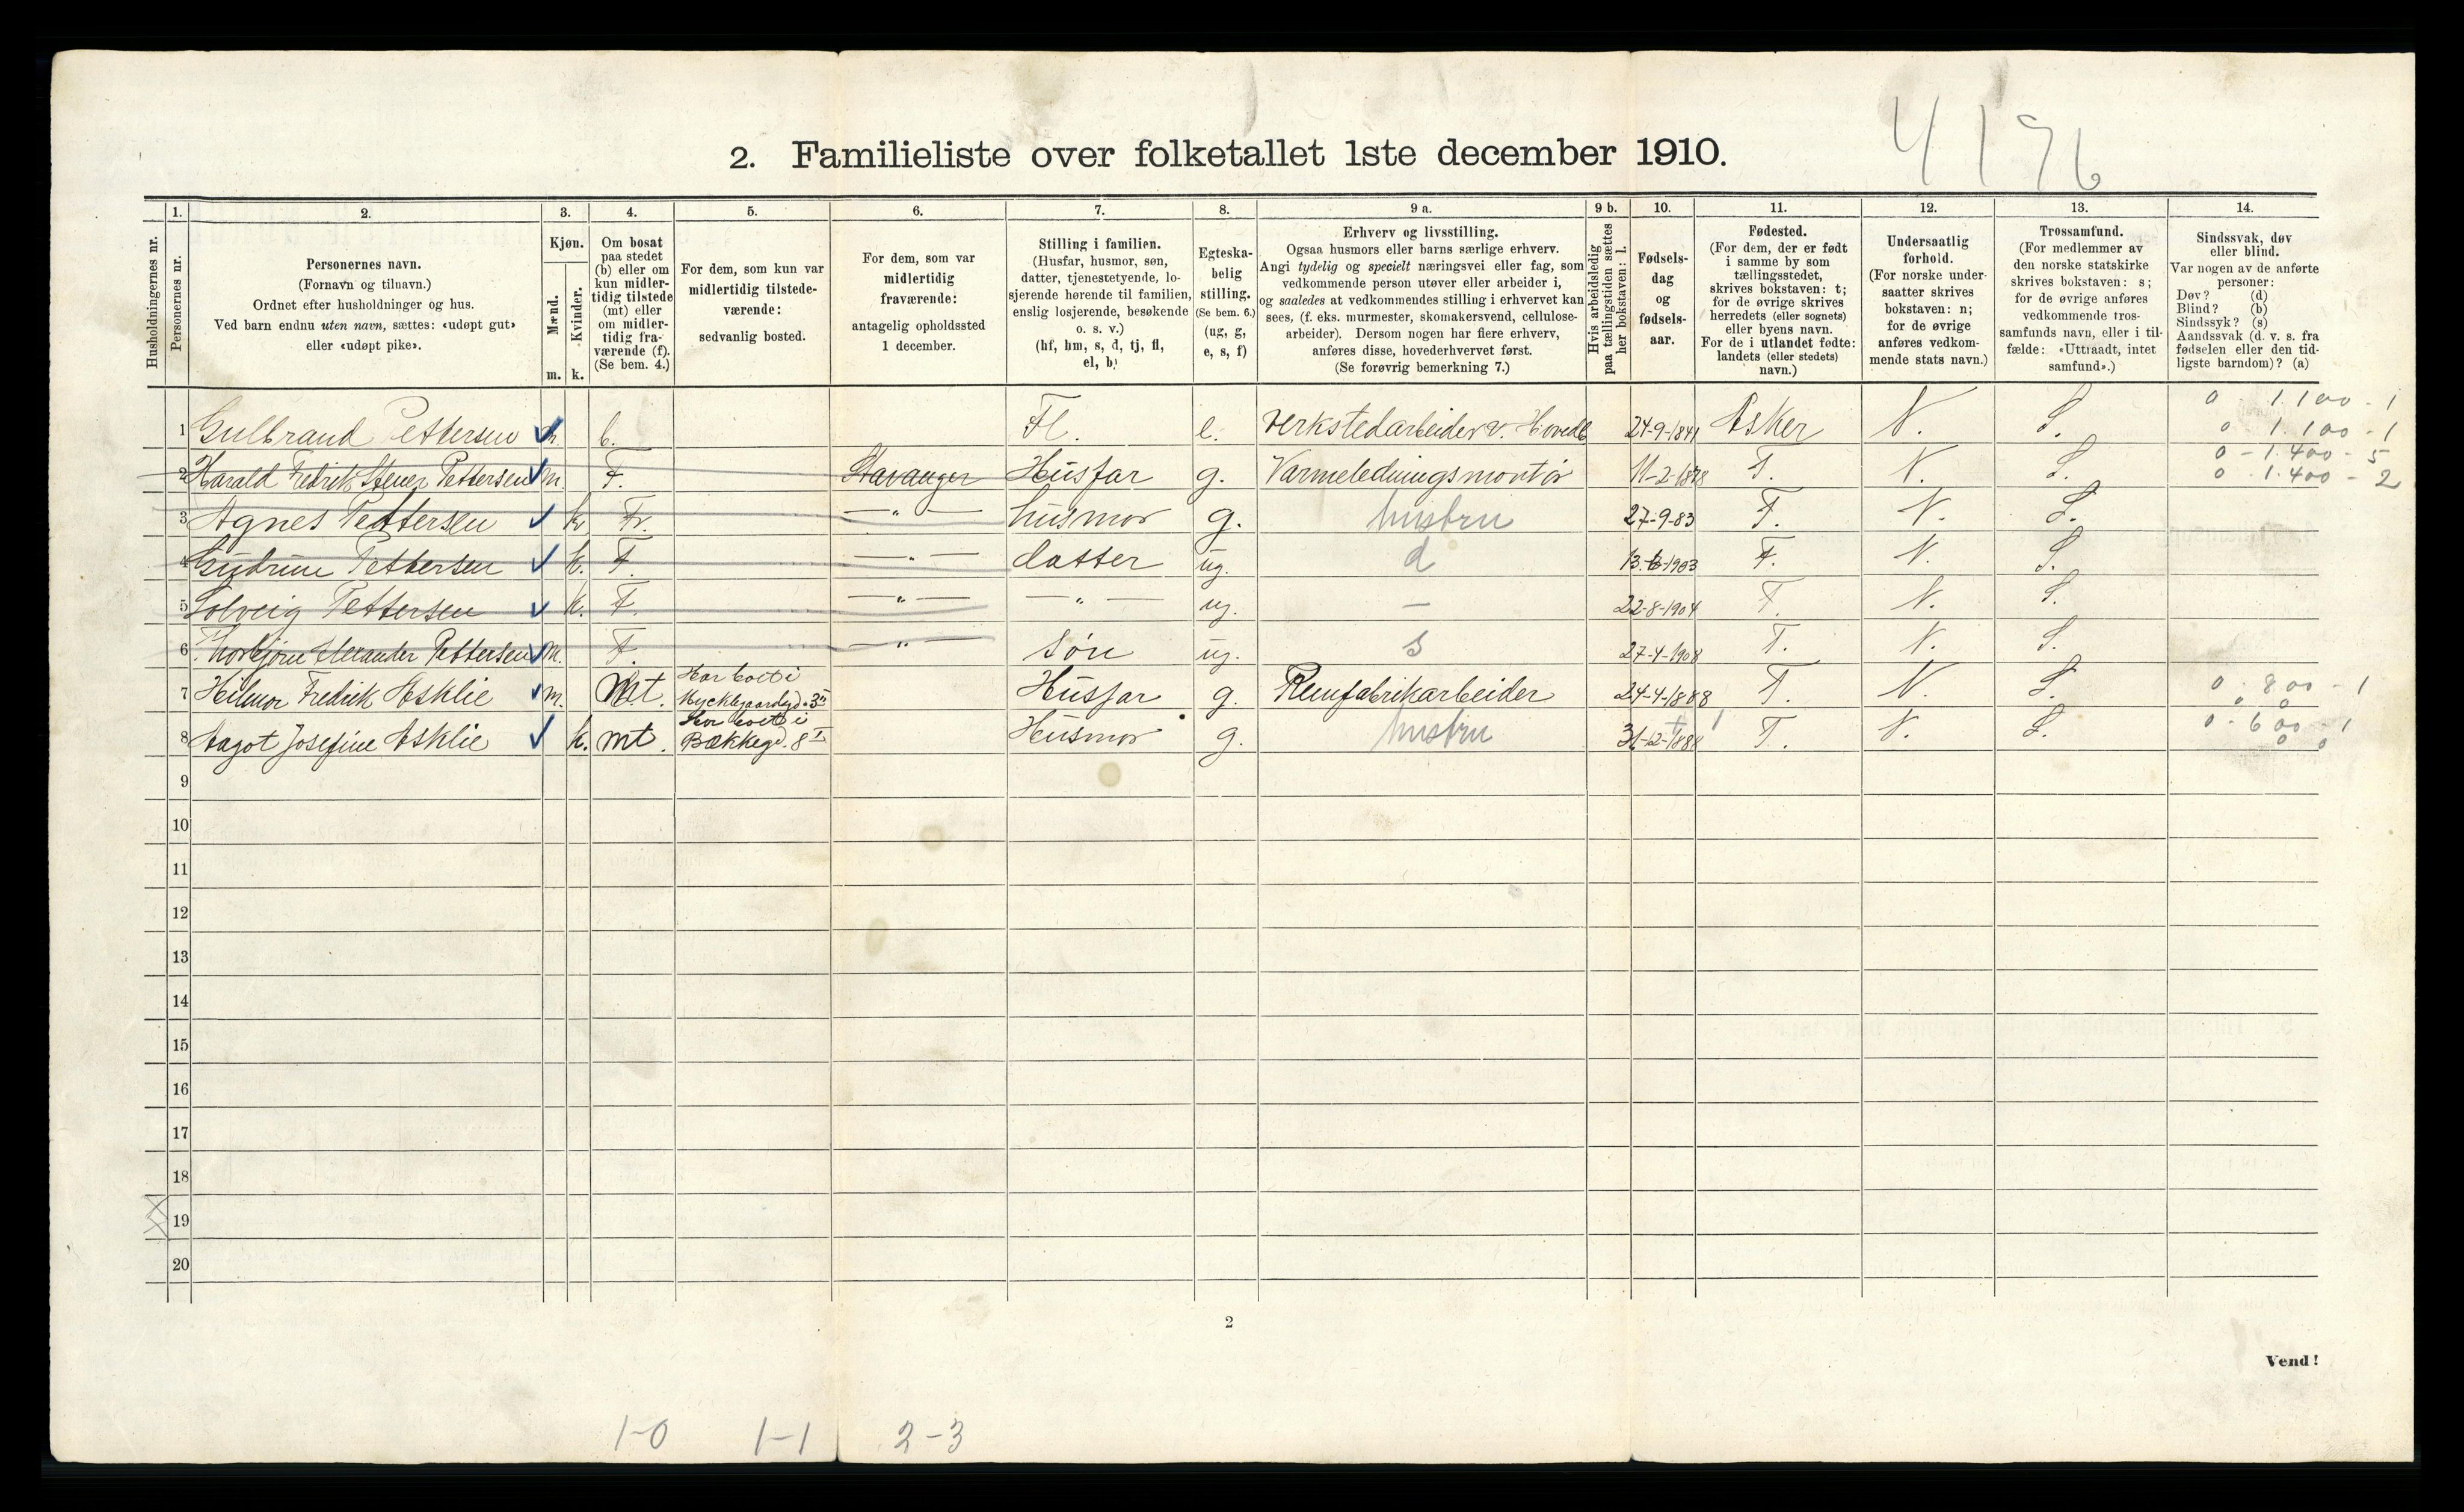 4176
2. Familieliste over folketallet 1ste december 1910.
1. 2. 3. 4. 5. 6. 7. 8. 9 a. 9 b. 10. 11. 12. 13. 14.
Husholdningernes nr.
Personernes nr.
Personernes navn.
(Fornavn og tilnavn.)
Ordnet efter husholdninger og hus.
Ved barn endnu uten navn, sættes: «udøpt gut»
eller «udøpt pike».
Kjøn.
Mænd.
Kvinder.
m. k.
Om bosat
paa stedet
(b) eller om
kun midler-
tidig tilstede
(mt) eller
om midler-
tidig fra-
værende (f).
(Se bem. 4.)
For dem, som kun var
midlertidig tilstede-
værende:
sedvanlig bosted.
For dem, som var
midlertidig
fraværende:
antagelig opholdssted
1 december.
Stilling i familien.
(Husfar, husmor, søn,
datter, tjenestetyende, lo-
sjerende hørende til familien,
enslig losjerende, besøkende
o. s. v.)
(hf, hm, s, d, tj, fl,
el, b)
Egteska-
belig
stilling.
(Se bem. 6.)
(ug, g,
e, s, f)
Erhverv og livsstilling.
Ogsaa husmors eller barns særlige erhverv.
Angi tydelig og specielt næringsvei eller fag, som
vedkommende person utøver eller arbeider i,
og saaledes at vedkommendes stilling i erhvervet kan
sees, (f. eks. murmester, skomakersvend, cellulose-
arbeider). Dersom nogen har flere erhverv,
anføres disse, hovederhvervet først.
(Se forøvrig bemerkning 7.)
Hvis arbeidsledig
paa tællingstiden sættes
her bokstaven: l.
Fødsels-
dag
og
fødsels-
aar.
Fødested.
(For dem, der er født
i samme by som
tællingsstedet,
skrives bokstaven: t;
for de øvrige skrives
herredets (eller sognets)
eller byens navn.
For de i utlandet fødte:
landets (eller stedets)
navn.)
Undersaatlig
forhold.
(For norske under-
saatter skrives
bokstaven: n;
for de øvrige
anføres vedkom-
mende stats navn.)
Trossamfund.
(For medlemmer av
den norske statskirke
skrives bokstaven: s;
for de øvrige anføres
vedkommende tros-
samfunds navn, eller i til-
fælde: «Uttraadt, intet
samfund».)
Sindssvak, døv
eller blind.
Var nogen av de anførte
personer:
Døv? (d)
Blind? (b)
Sindssyk? (s)
Aandssvak (d. v. s. fra
fødselen eller den tid-
ligste barndom)? (a)
1 Gulbrand Pettersen m. b. Fl. e. Verkstedarbeider v. Hovedb 24-9-1841 Asker N. S. 0 - 1.100 - 1
0 1.100 - 1
2 Harald Fedrik Stener Pettersen m. F. Stavanger Husfar g. Varmeledningsmontør 11-2-1878 T. N. S. 0 - 1.400 - 5
0 - 1.400 - 2
3 Agnes Pettersen k Fr. — " — husmor g. hustru 27-9-83 T. N. S.
4 Gudrun Pettersen k. F. — " — datter ug. d 1903 T. N. S.
5 Solveig Pettersen k. F. — " — — " — ug. — 22-8-1904 T. N. S.
6 Thorbjørn Alexander Pettersen m. F. — " — Søn ug. s 27-4-1908 T. N. S.
7 Hilmor Fredrik Asklie m. mt. Har boet i
Husfar g. Remfabrikarbeider 24-4-1888 T. N. S. 0 - 800 - 1
0 0
8 Aagot Josefine Asklie k. mt. Har boet i
Bakkegd. 8 I Husmor g. hustru 31-12-1888 T. N. S. 0 - 600 - 1
0 0
9
10
11
12
13
14
15
16
17
18
19
20
2
Vend!
1-0 1-1 2-3